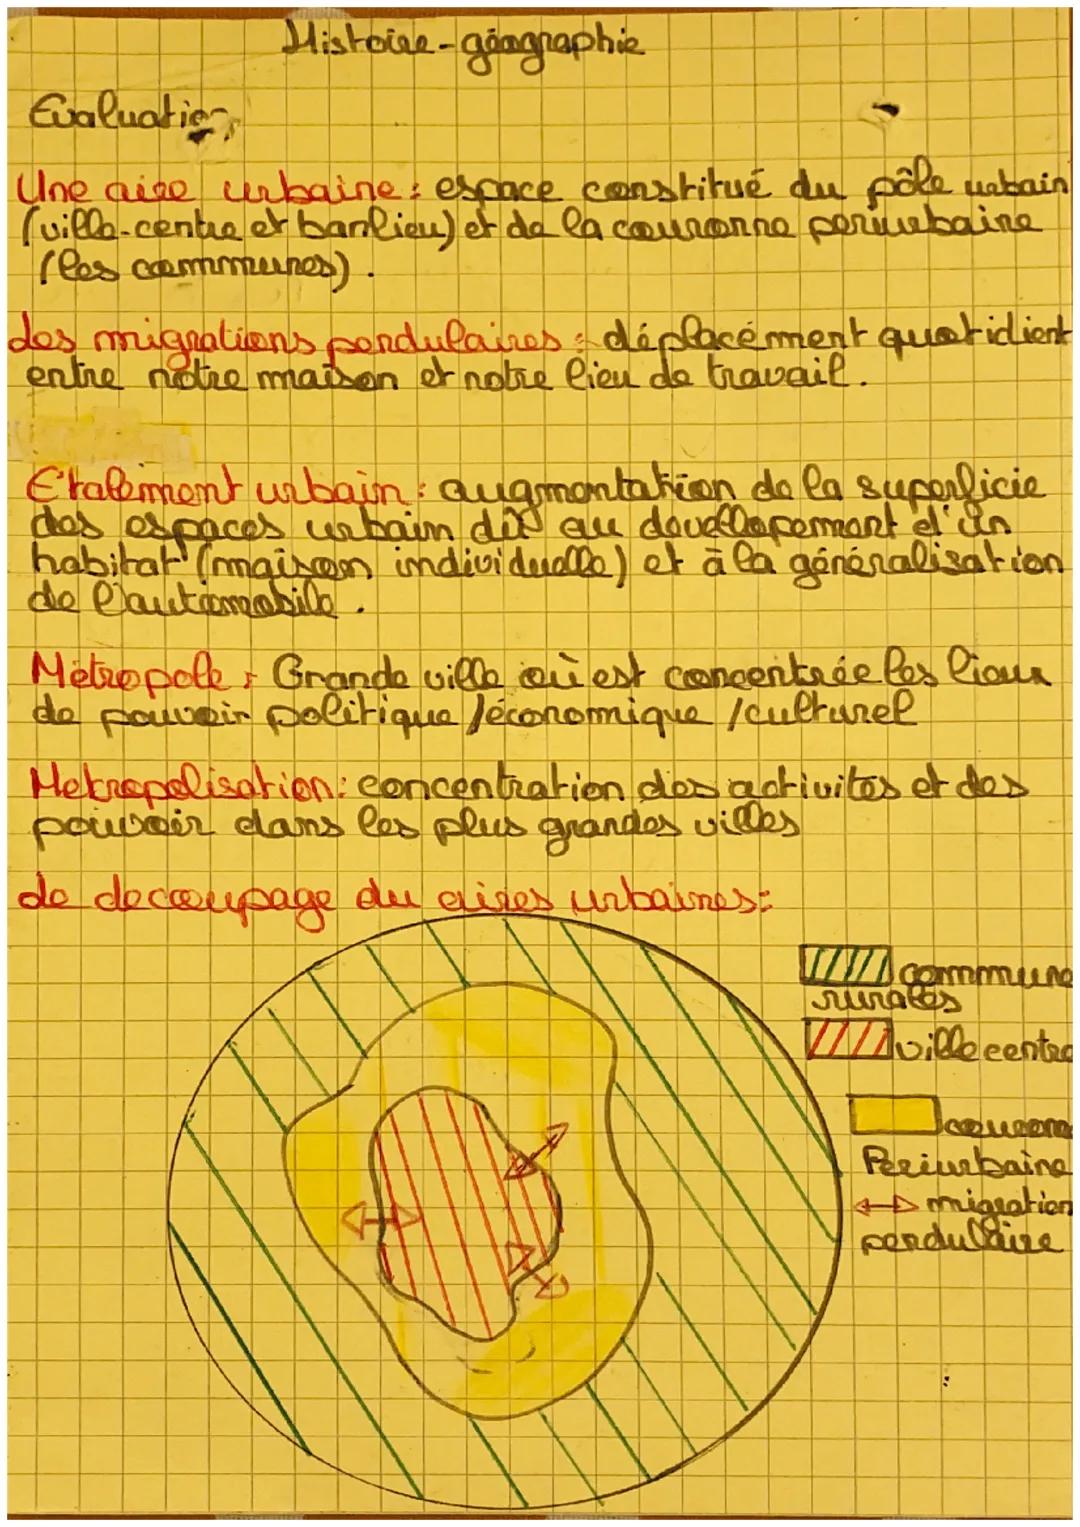 Histoire-géographie
Evaluation
Une aire urbaine : espace constitué du pôle urbain
(ville-centre et banlieu) et de la couronne periurbaine
(les communes).
des migrations pendulaires : déplacément quotidient
entre notre maison et notre lieu de travail.
Etalement urbain : augmentation de la superficie
des espaces urbain dû au devellopement d'un
habitat (maison individuelle) et à la généralisation
de l'automobile.
Métropole : Grande ville où est concentrée les lieux
de pouvoir politique /économique /culturel
Metropolisation : concentration des activités et des
pouvoir dans les plus grandes villes
de decoupage du aires urbaines :
commune
rurales
ville centre
couronne
Periurbaine
migration
pendulaire